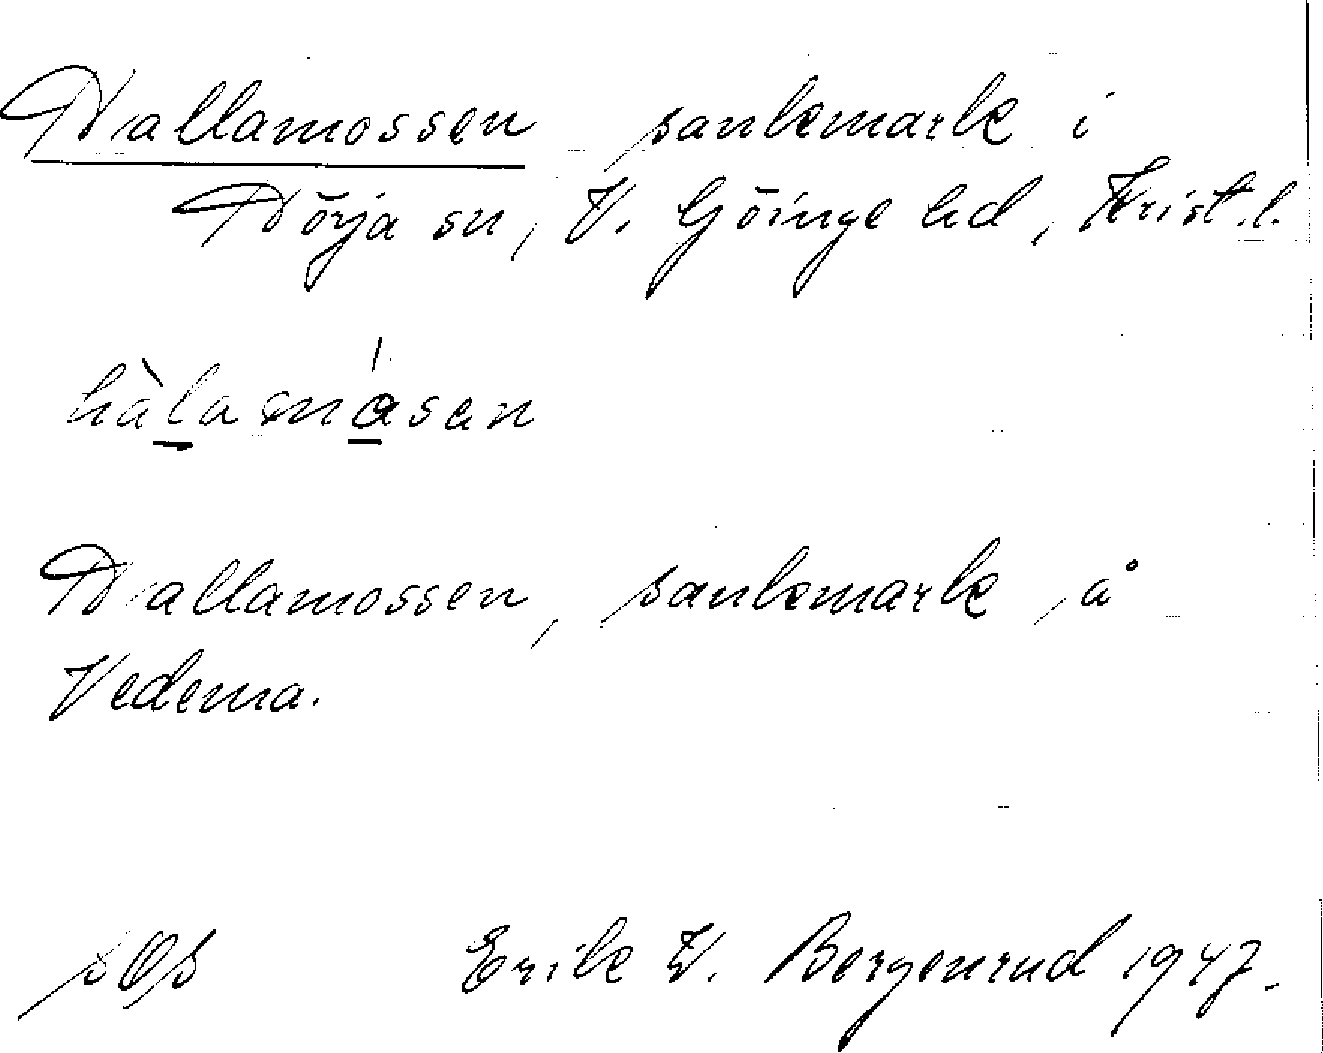 Hallamossen sankmark i
Hörja sn, V. Göinge hd, Krist.l.
Hallamossen, sankmark, å
Vedema.
Erik W. Bergenrud 1947.